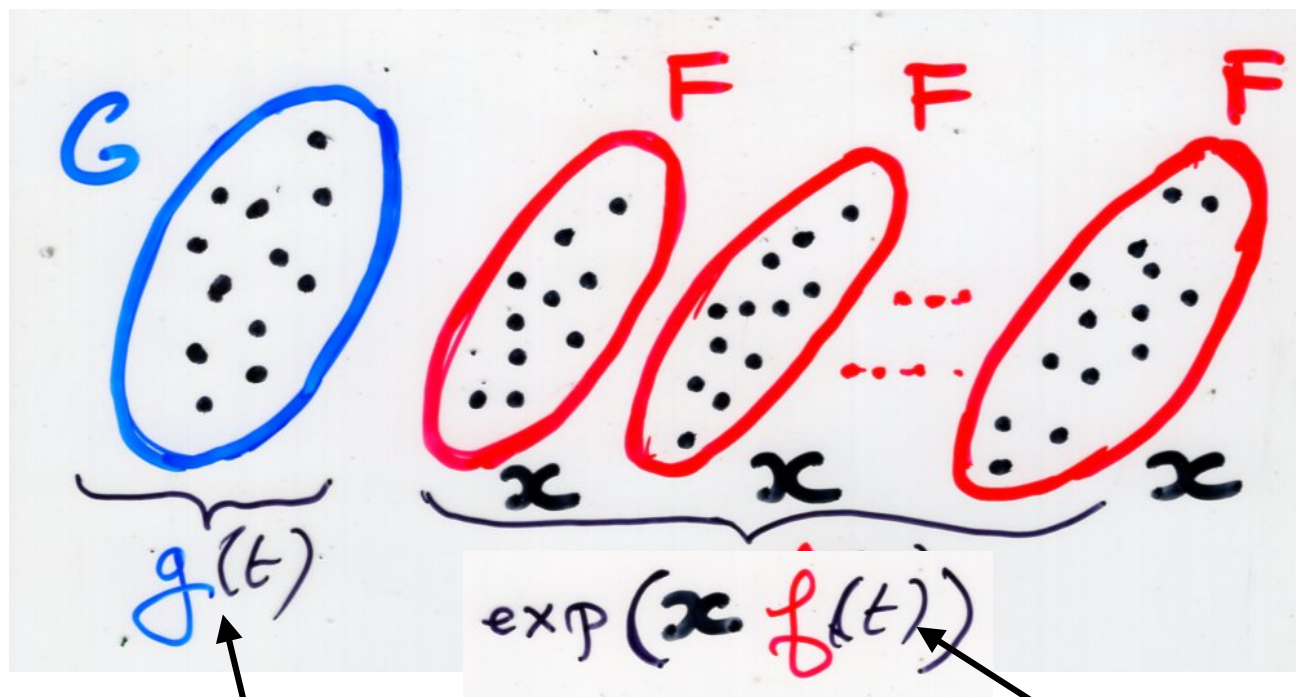 G F F F
x x x
g(t) exp(x f(t))